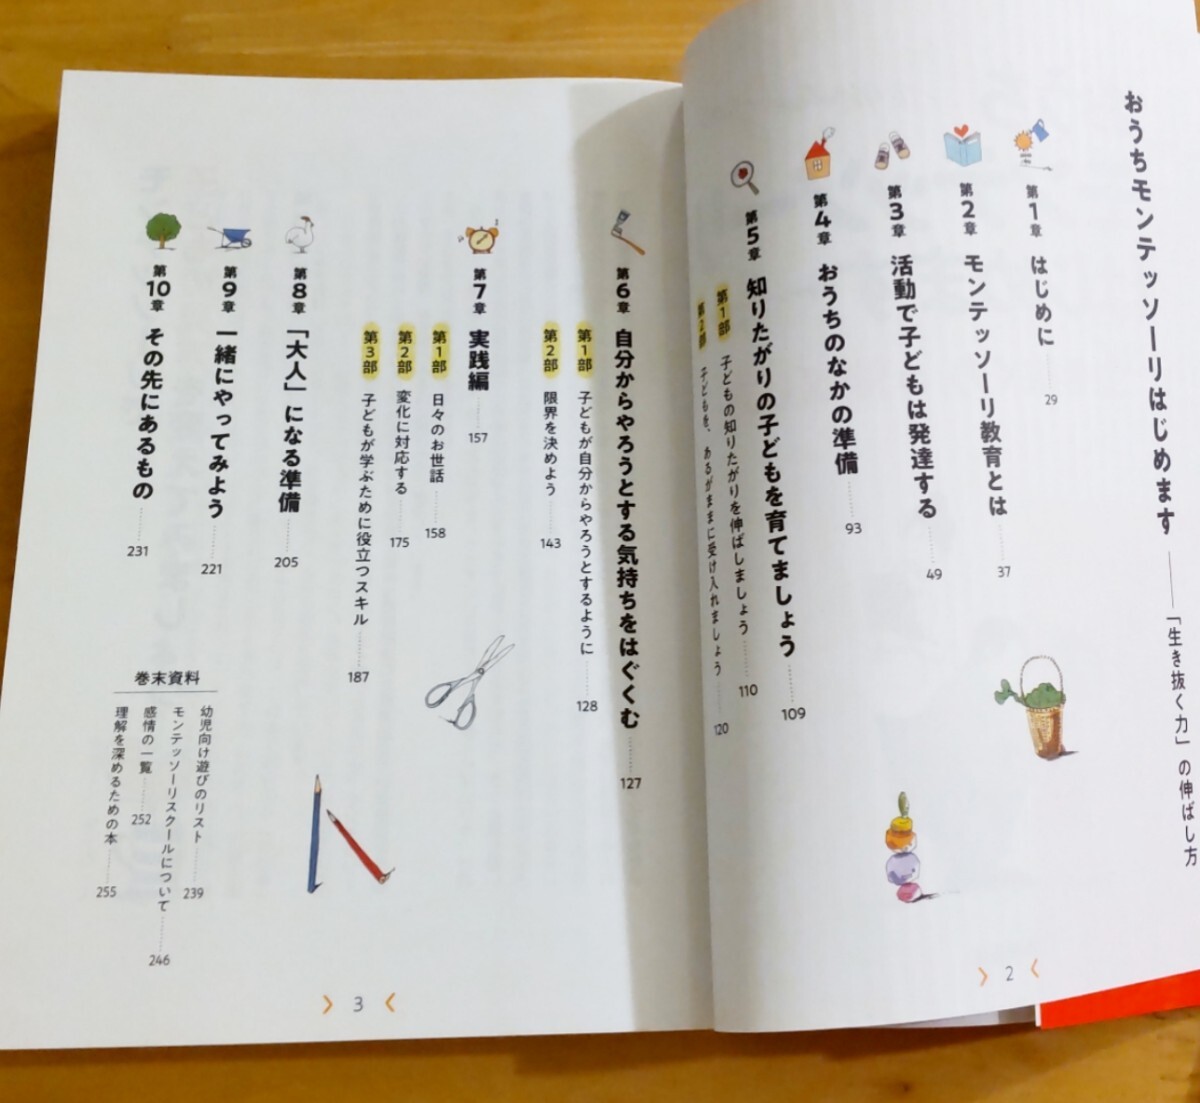 おうちモンテッソーリはじめます ――「生き抜く力」の伸ばし方
第1章 はじめに ……… 29
第2章 モンテッソーリ教育とは ……… 37
第3章 活動で子どもは発達する ……… 49
第4章 おうちのなかの準備 ……… 93
第5章 知りたがりの子どもを育てましょう ……… 109
第1部 子どもの知りたがりを伸ばしましょう ……… 110
第2部 子どもを、あるがままに受け入れましょう ……… 120
2
第6章 自分からやろうとする気持ちをはぐくむ ……… 127
第1部 子どもが自分からやろうとするように ……… 128
第2部 限界を決めよう ……… 143
第7章 実践編 ……… 157
第1部 日々のお世話 ……… 158
第2部 変化に対応する ……… 175
第3部 子どもが学ぶために役立つスキル ……… 187
第8章 「大人」になる準備 ……… 205
第9章 一緒にやってみよう ……… 221
第10章 その先にあるもの ……… 231
巻末資料
幼児向け遊びのリスト ……… 239
モンテッソーリスクールについて ……… 246
感情の一覧 ……… 252
理解を深めるための本 ……… 255
3